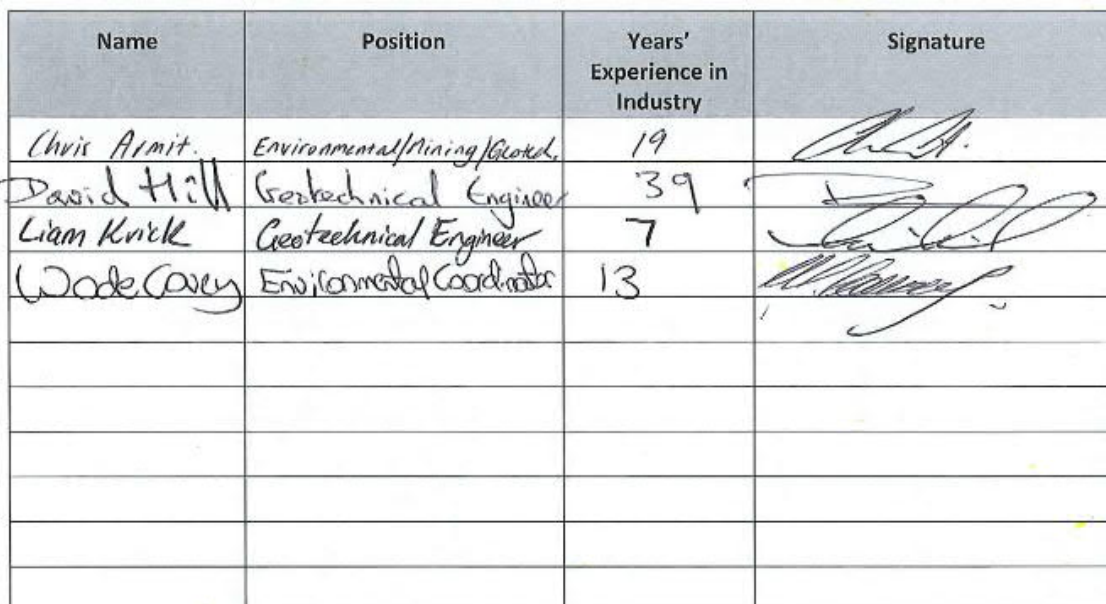 Name Position Years' Experience in Industry Signature
Chris Armit. Environmental/Mining/Geotech. 19
David Hill Geotechnical Engineer 39
Liam Krick Geotechnical Engineer 7
Wade Covey Environmental Coordinator 13